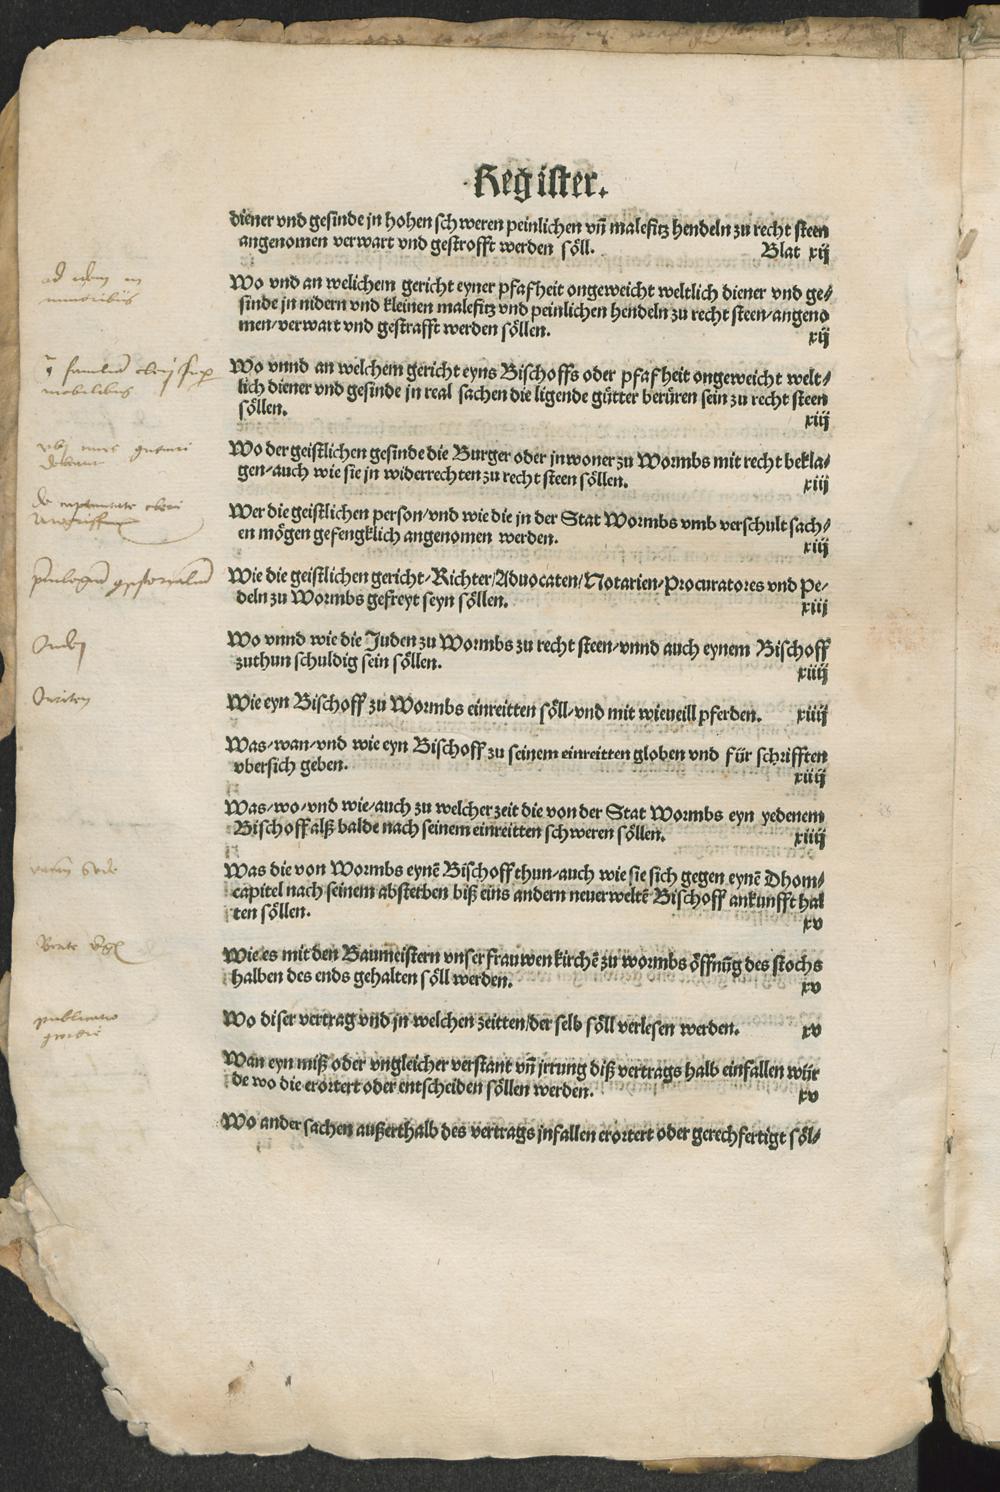 Register.
diener vnd gesinde jn hohen schweren peinlichen vñ malefitz hendeln zu recht steen
angenomen verwart vnd gestrofft werden söll. Blat xij
ad idem in
minoribus
Wo vnd an welichem gericht eyner pfafheit ongeweicht weltlich diener vnd ge⸗
sinde jn nidern vnd kleinen malefitz vnd peinlichen hendeln zu recht steen/angeno
men/verwart vnd gestrafft werden söllen. xij
mobilibus
Wo vnnd an welchem gericht eyns Bischoffs oder pfafheit ongeweicht welt⸗
lich diener vnd gesinde jn real sachen die ligende gütter berüren sein zu recht steen
söllen. xiij
Wo der geistlichen gesinde die Burger oder jnwoner zu Wormbs mit recht bekla⸗
gen/auch wie sie jn widerrechten zu recht steen söllen. xiij
Wer die geistlichen person/vnd wie die jn der Stat Wormbs vmb verschult sach⸗
en mögen gefengklich angenomen werden. xiij
Wie die geistlichen gericht/Richter/Aduocaten/Notarien/Procuratores vnd Pe⸗
deln zu Wormbs gefreyt seyn söllen. xiij
Wo vnnd wie die Juden zu Wormbs zu recht steen/vnnd auch eynem Bischoff
zuthun schuldig sein söllen. xiiij
Wie eyn Bischoff zu Wormbs einreitten söll/vnd mit wieueill pferden. xiiij
Was/wan/vnd wie eyn Bischoff zu seinem einreitten globen vnd für schrifften
vbersich geben. xiiij
Was/wo/vnd wie/auch zu welcher zeit die von der Stat Wormbs eyn yedenem
Bischoff alß balde nach seinem einreitten schweren söllen. xiiij
Was die von Wormbs eynẽ Bischoff thun/auch wie sie sich gegen eynẽ Dhom⸗
capitel nach seinem absterben biß eins andern neuerweltẽ Bischoff ankunfft hal
ten söllen. xv
Wie es mit den Baumeistern vnser frauwen kirchẽ zu wormbs öffnũg des stochs
halben des ends gehalten söll werden. xv
publicatio
Wo diser vertrag vnd jn welchen zeitten/der selb söll verlesen werden. xv
Wan eyn miß oder vngleicher verstant vñ jrrung diß vertrags halb einfallen wür
de wo die erörtert oder entscheiden söllen werden. xv
Wo ander sachen außerthalb des vertrags jnfallen erortert oder gerechfertigt söl⸗